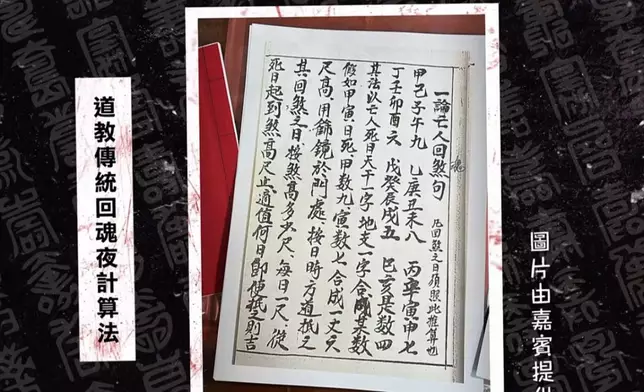 道教傳統回魂夜計算法
一論亡人回煞句
魂
凡回煞之日須照此推算也
甲己子午九 乙庚丑未八 丙辛寅申七
丁壬卯酉六 戊癸辰戌五 巳亥是數四
其法以亡人死日天干一字地支一字合成其數
假如甲寅日死、甲數九、寅數七合成一丈六
尺高、用篩鏡於門處、按日時方道抵之
其回煞之日、按煞高多少尺、每日一尺、從
死日起到煞高尺止、值何日即使抵之則吉
圖片由嘉賓提